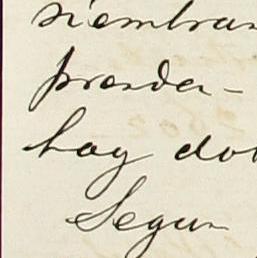 siembran
prenda-
hay do
Segun